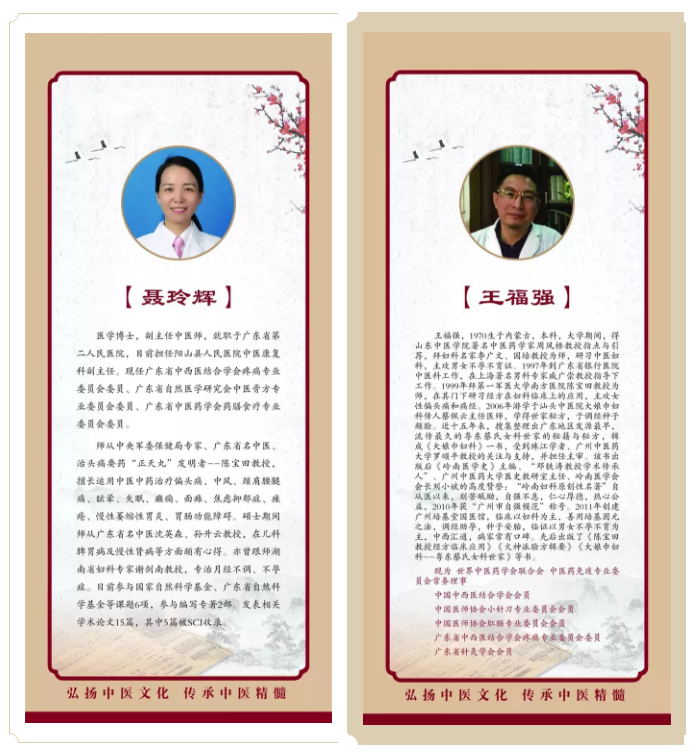 【聂玲辉】
医学博士，副主任中医师，就职于广东省第
二人民医院，目前担任阳山县人民医院中医康复
科副主任。现任广东省中西医结合学会疼痛专业
委员会委员、广东省自然医学研究会中医膏方专
业委员会委员、广东省中医药学会药膳食疗专业
委员会委员。
师从中央军委保健局专家、广东省名中医、
治头痛要药“正天丸”发明者--陈宝田教授，
擅长运用中医中药治疗偏头痛、中风、颈肩腰腿
痛、眩晕、失眠、癫痫、面瘫、焦虑抑郁症、痤
疮、慢性萎缩性胃炎、胃肠功能障碍。硕士期间
师从广东省名中医沈英森、孙升云教授，在儿科
脾胃病及慢性肾病等方面颇有心得。亦曾跟师湖
南省妇科专家谢剑南教授，专治月经不调、不孕
症。目前参与国家自然科学基金、广东省自然科
学基金等课题6项，参与编写专著2部。发表相关
学术论文15篇，其中5篇被SCI收录。
弘扬中医文化 传承中医精髓
【王福强】
王福强，1970生于内蒙古，本科，大学期间，得
山东中医学院著名中医药学家周凤梧教授指点与引
荐，拜妇科名家李广文、国培教授为师，研习中医妇
科，主攻男女不孕不育证。1997年到广东省银行医院
中医科工作，在上海著名男科专家戚广崇教授指导下
工作。1999年拜第一军医大学南方医院陈宝田教授为
师，在其门下研习经方在妇科临床上的应用，主攻女
性偏头痛和痛经。2006年游学于汕头中医院大娘巾妇
科传人蔡佩云主任医师，学得世家秘方，于调经种子
颇验。近十五年来，搜集整理出广东地区发源最早，
流传最久的粤东蔡氏女科世家的秘籍与秘方，辑
成《大娘巾妇科》一书，受到珠江学者、广州中医药
大学罗颂平教授的关注与支持，并担任主审。该书出
版后《岭南医学史》主编、“邓铁涛教授学术传承
人”、广州中医药大学医史教研室主任、岭南医学会
会长刘小斌的高度赞誉：“岭南妇科原创性名著”自
从医以来，刻苦砥励，自强不息，仁心厚德，热心公
益，2010年获“广州市自强模范”称号。2011年创建
广州培基堂国医馆，临床以妇科为主，善用培基固元
之法，调经助孕，种子安胎，临证以男女不孕不育为
主，中西汇通，病家常有口碑。先后出版了《陈宝田
教授经方临床应用》《火神派验方辑要》《大娘巾妇
科--粤东蔡氏女科世家》等书。
现为 世界中医药学会联合会 中医药免疫专业委
员会常务理事
中国中西医结合学会会员
中国医师协会小针刀专业委员会会员
中国医师协会肛肠专业委员会会员
广东省中西医结合学会疼痛专业委员会委员
广东省针灸学会会员
弘扬中医文化 传承中医精髓